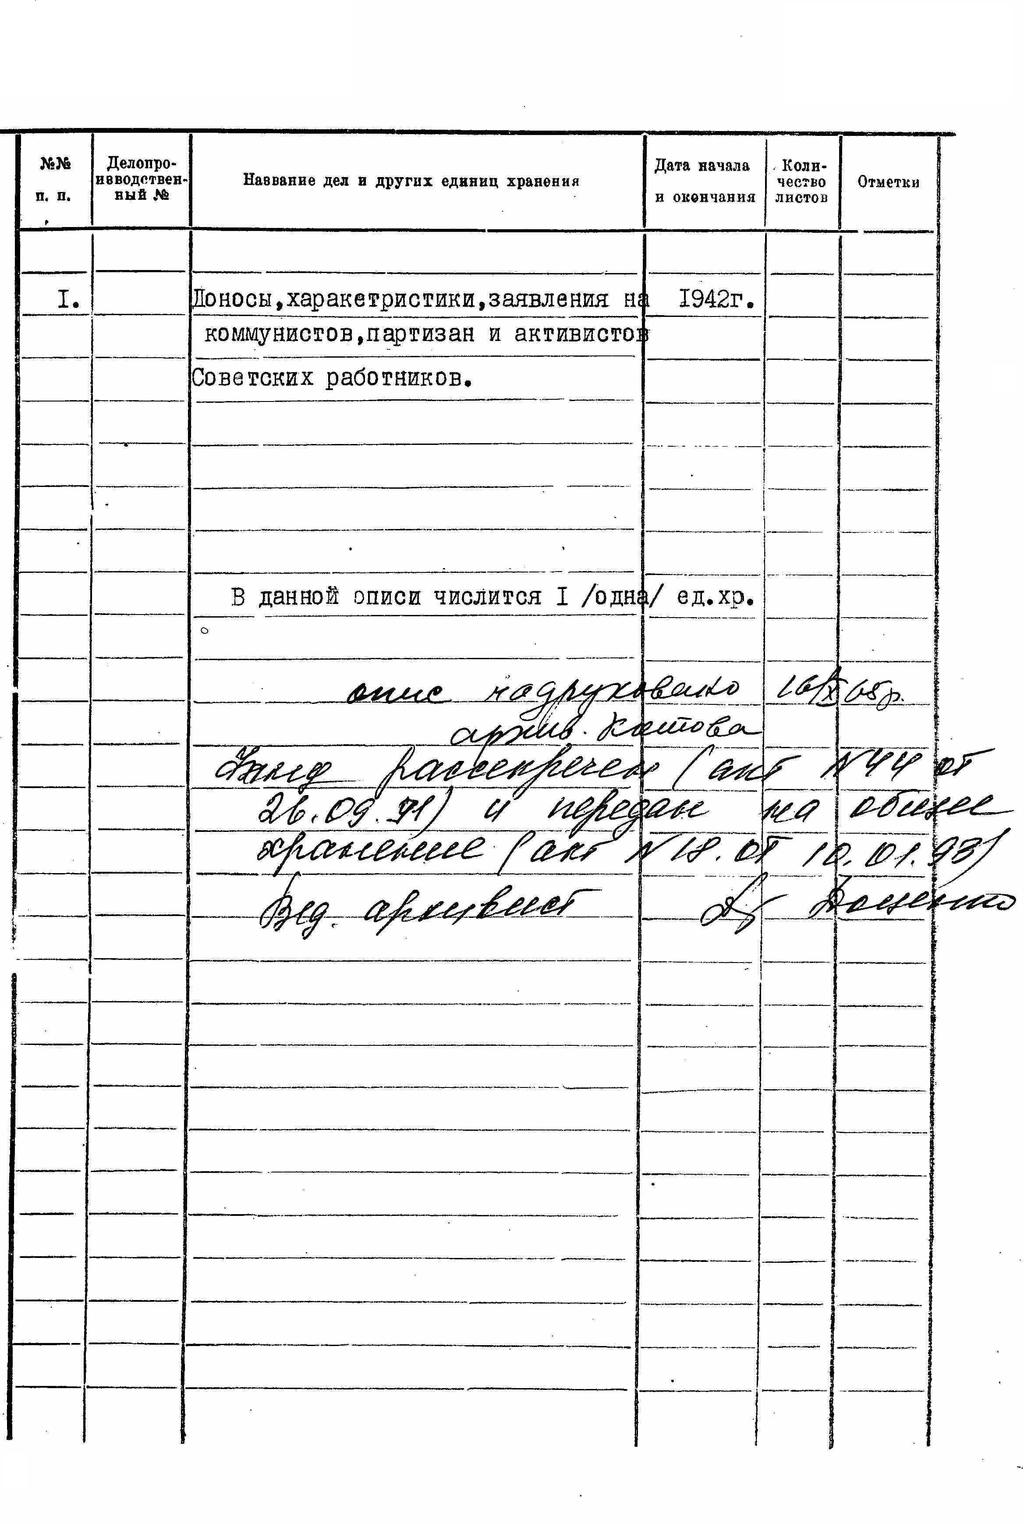 №№ п. п. Делопроизводственный № Название дел и других единиц хранения Дата начала и окончания Количество листов Отметки
I. Доносы,характеристики,заявления на 1942г.
коммунистов,партизан и активистов
Советских работников.
В данной описи числится I /одна/ ед.хр.
опис надруковано 16/X 65р.
архив.
Фонд рассекречен (акт N44 от
26.09.91) и передан на общее
хранение (акт N18. от 10.01.93)
Вед. архивист Доценко